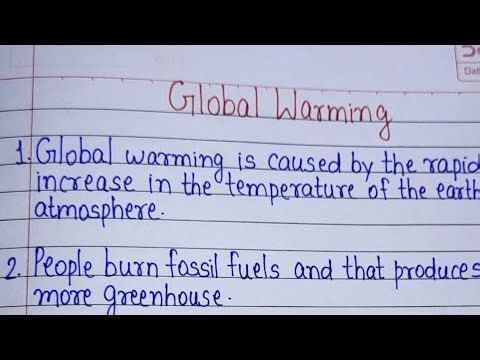 Date
Global Warming
1. Global warming is caused by the rapid
increase in the temperature of the earth
atmosphere.
2. People burn fossil fuels and that produces
more greenhouse.